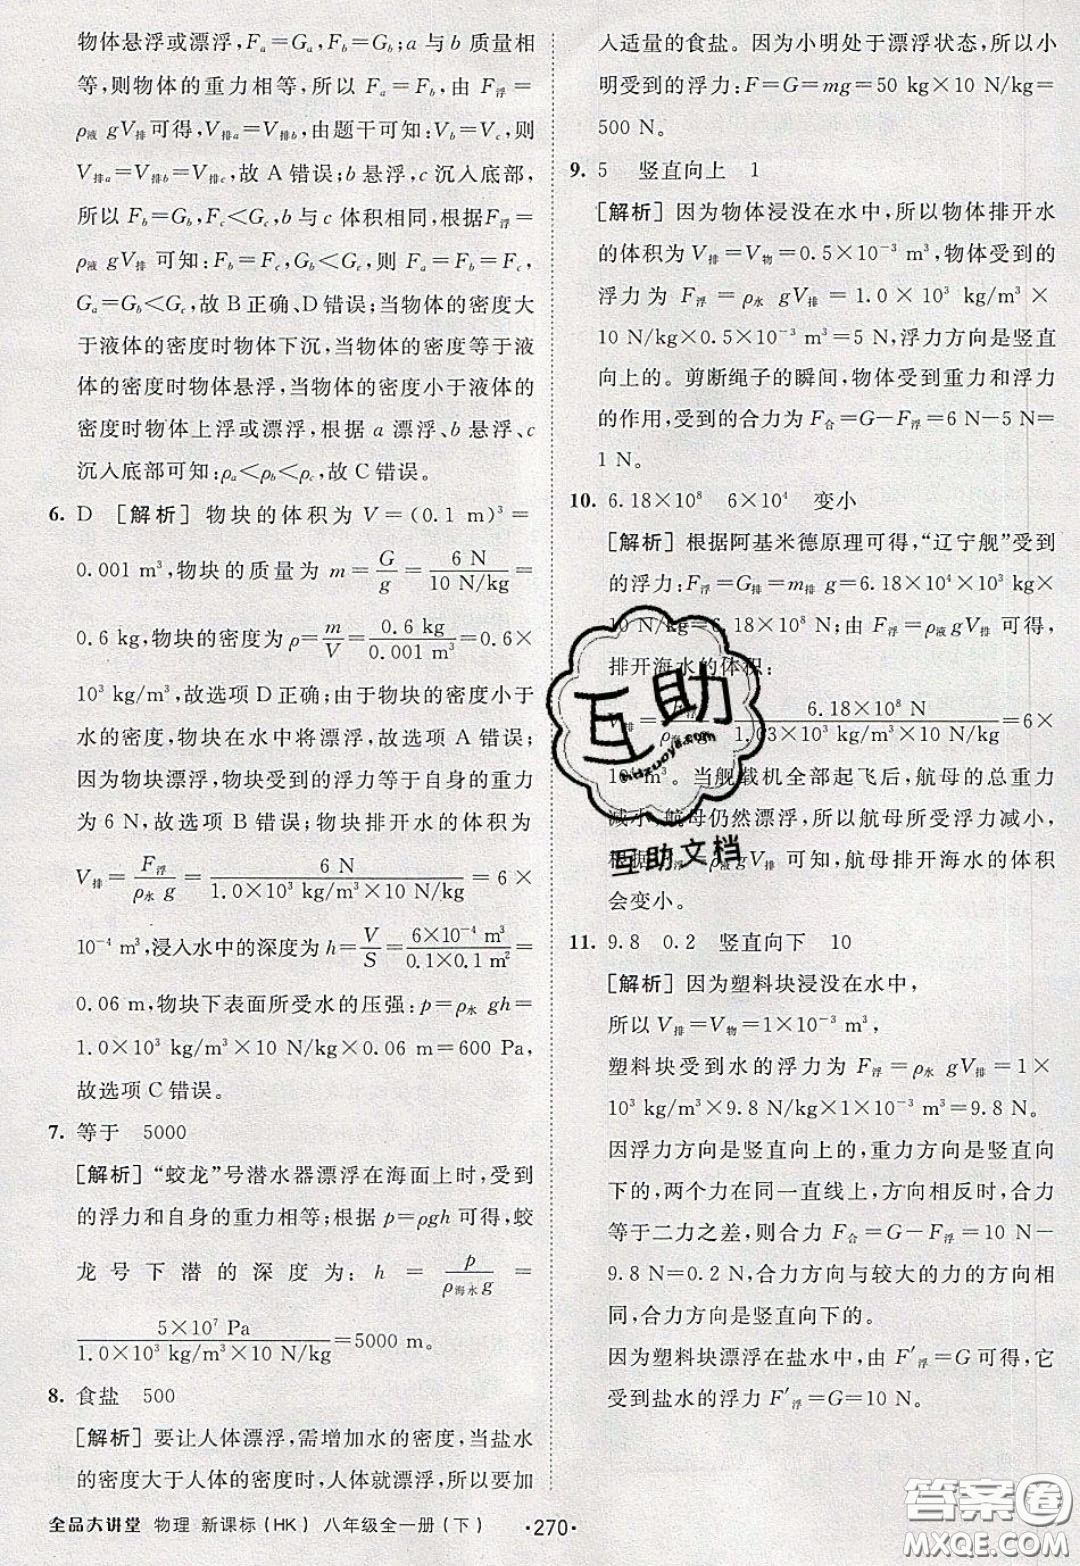 物体悬浮或漂浮,Fₐ=Gₐ,F_b=G_b;a与b质量相
等,则物体的重力相等,所以Fₐ=F_b,由F浮=
ρ液gV排可得,V排a=V排b,由题干可知:V_b=V_c,则
V排a=V排b=V排c,故A错误;b悬浮,c沉入底部,
所以F_b=G_b,F_c<G_c,b与c体积相同,根据F浮=
ρ液gV排可知:F_b=F_c,G_b<G_c,则Fₐ=F_b=F_c,
Gₐ=G_b<G_c,故B正确、D错误;当物体的密度大
于液体的密度时物体下沉,当物体的密度等于液
体的密度时物体悬浮,当物体的密度小于液体的
密度时物体上浮或漂浮,根据a漂浮、b悬浮、c
沉入底部可知:ρₐ<ρ_b<ρ_c,故C错误。
6. D [解析]物块的体积为V=(0.1 m)³=
0.001 m³,物块的质量为m=G/g=6 N/10 N/kg=
0.6 kg,物块的密度为ρ=m/V=0.6 kg/0.001 m³=0.6×
10³ kg/m³,故选项D正确;由于物块的密度小于
水的密度,物块在水中将漂浮,故选项A错误;
因为物块漂浮,物块受到的浮力等于自身的重力
为6 N,故选项B错误;物块排开水的体积为
V排=F浮/ρ水g=6 N/1.0×10³ kg/m³×10 N/kg=6×
10⁻⁴ m³,浸入水中的深度为h=V/S=6×10⁻⁴ m³/0.1×0.1 m²=
0.06 m,物块下表面所受水的压强:p=ρ水gh=
1.0×10³ kg/m³×10 N/kg×0.06 m=600 Pa,
故选项C错误。
7. 等于 5000
[解析]“蛟龙”号潜水器漂浮在海面上时,受到
的浮力和自身的重力相等;根据p=ρgh可得,蛟
龙号下潜的深度为:h=p/ρ海水g=
5×10⁷ Pa/1.0×10³ kg/m³×10 N/kg=5000 m。
8. 食盐 500
[解析]要让人体漂浮,需增加水的密度,当盐水
的密度大于人体的密度时,人体就漂浮,所以要加
入适量的食盐。因为小明处于漂浮状态,所以小
明受到的浮力:F=G=mg=50 kg×10 N/kg=
500 N。
9. 5 竖直向上 1
[解析]因为物体浸没在水中,所以物体排开水
的体积为V排=V物=0.5×10⁻³ m³,物体受到的
浮力为F浮=ρ水gV排=1.0×10³ kg/m³×
10 N/kg×0.5×10⁻³ m³=5 N,浮力方向是竖直
向上的。剪断绳子的瞬间,物体受到重力和浮力
的作用,受到的合力为F合=G-F浮=6 N-5 N=
1 N。
10. 6.18×10⁸ 6×10⁴ 变小
[解析]根据阿基米德原理可得,“辽宁舰”受到
的浮力:F浮=G排=m排g=6.18×10⁴×10³ kg×
10 N/kg=6.18×10⁸ N;由F浮=ρ液gV排可得,
排开海水的体积:
=6.18×10⁸ N/1.03×10³ kg/m³×10 N/kg=6×
m³。当舰载机全部起飞后,航母的总重力
减小,航母仍然漂浮,所以航母所受浮力减小,
根据F浮=ρ液gV排可知,航母排开海水的体积
会变小。
11. 9.8 0.2 竖直向下 10
[解析]因为塑料块浸没在水中,
所以V排=V物=1×10⁻³ m³,
塑料块受到水的浮力为F浮=ρ水gV排=1×
10³ kg/m³×9.8 N/kg×1×10⁻³ m³=9.8 N。
因浮力方向是竖直向上的,重力方向是竖直向
下的,两个力在同一直线上,方向相反时,合力
等于二力之差,则合力F合=G-F浮=10 N-
9.8 N=0.2 N,合力方向与较大的力的方向相
同,合力方向是竖直向下的。
因为塑料块漂浮在盐水中,由F′浮=G可得,它
受到盐水的浮力F′浮=G=10 N。
互助
互助文档
全品大讲堂 物理 新课标(HK) 八年级全一册(下)
·270·
答案圈
MXQE.COM